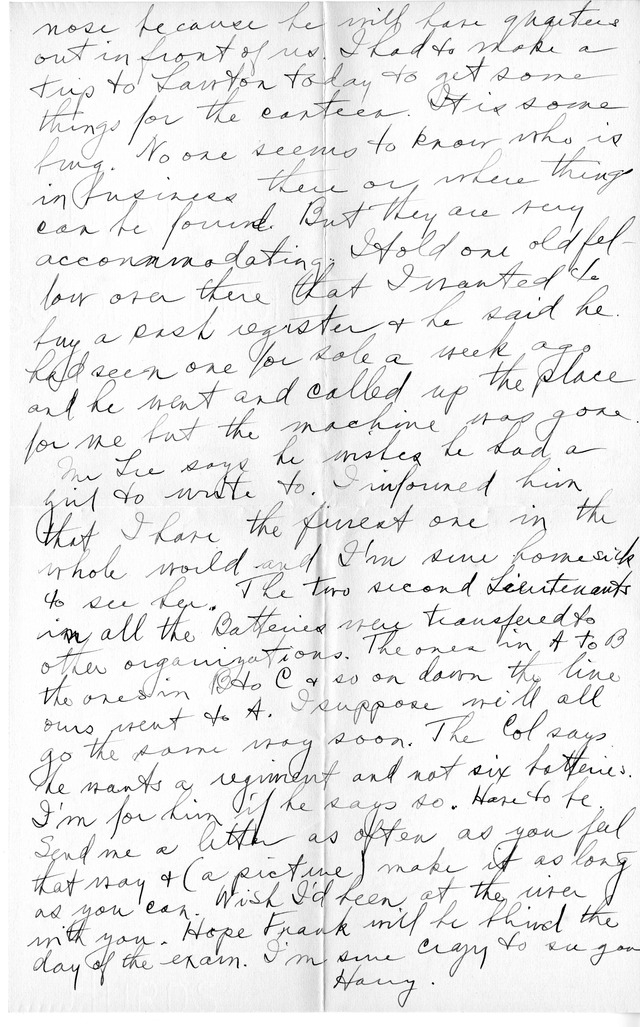 nose because he will have quarters
out in front of us. I had to make a
trip to Lawton today to get some
things for the canteen. It is some
burg. No one seems to know who is
in business there or where things
can be found. But they are very
accommodating. I told one old fel-
low over there that I wanted to
buy a cash register & he said he
had seen one for sale a week ago
and he went and called up the place
for me but the machine was gone.
Mr Lee says he wishes he had a
girl to write to. I informed him
that I have the finest one in the
whole world and I'm sure homesick
to see her. The two second Lieutenants
in all the Batteries were transfered to
other organizations. The ones in A to B
the ones in B to C & so on down the line
ours went to A. I suppose we'll all
go the same way soon. The Col says
he wants a regiment and not six batteries.
I'm for him if he says so. Have to be.
Send me a letter as often as you feel
that way & (a picture) make it as long
as you can. Wish I'd been at the river
with you. Hope Frank will be blind the
day of the exam. I'm sure crazy to see you
Harry.